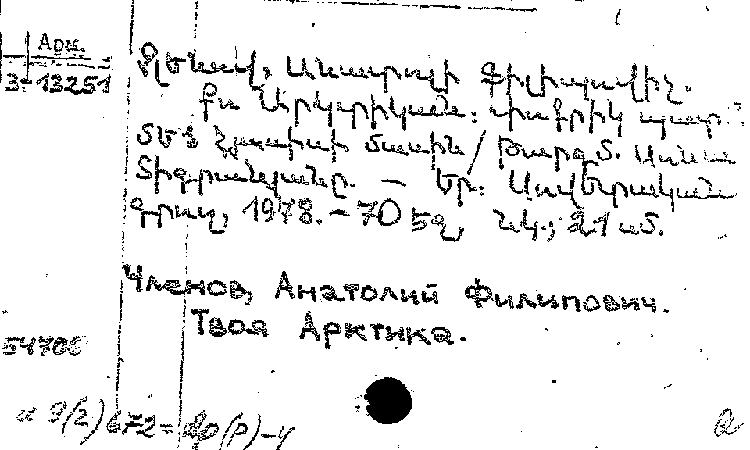 Арм.
3-13251
Չլենով, Անատոլի Ֆիլիպովիչ.
Քո Արկտիկան: Փոքրիկ պատ.
մեծ հյուսիսի մասին / Թարգմ. Աննա
Տիգրանյանը. — Եր.: Սովետական
գրող, 1978. – 70 էջ, նկ.; 21 սմ.
Членов, Анатолий Филипович.
Твоя Арктика.
54706
и 9(2)672=Ар(Р)-4